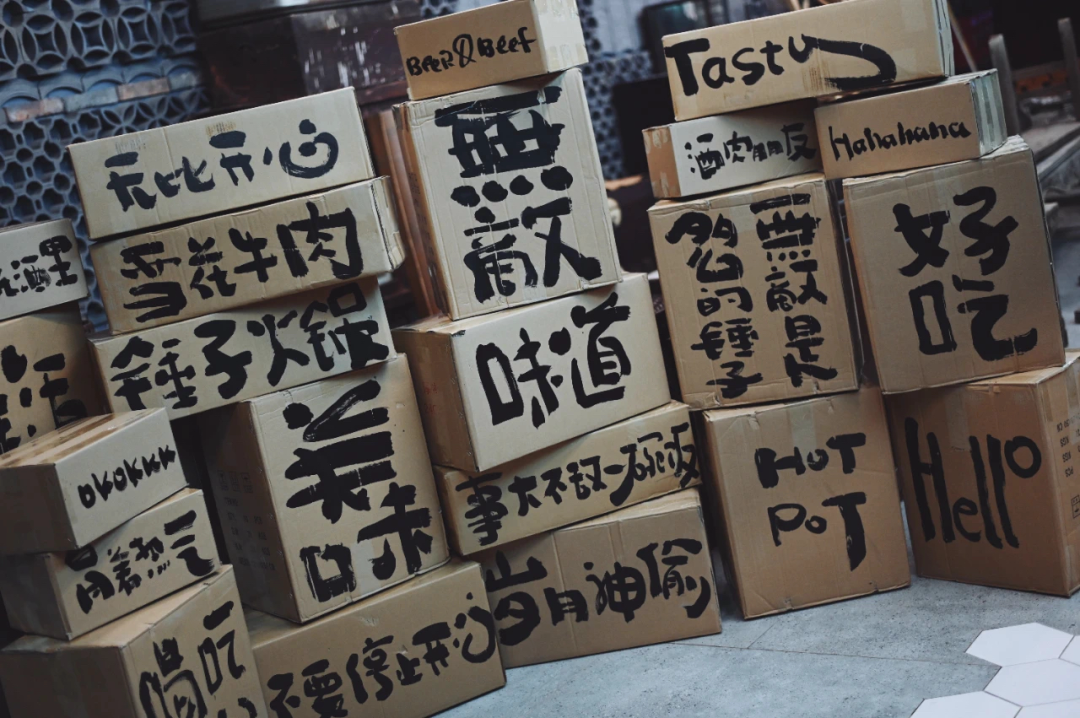 酒里
无比开心
雪花牛肉
锤子火锅
美
味
OKOKKK
冒着热气
不要停止开心
BEER&Beef
無
敵
味道
事大不敌一碗饭
岁月神偷
Tasty
酒肉朋友
Hahahaha
無敵是
多么的锤子
好
吃
HOT
POT
Hello